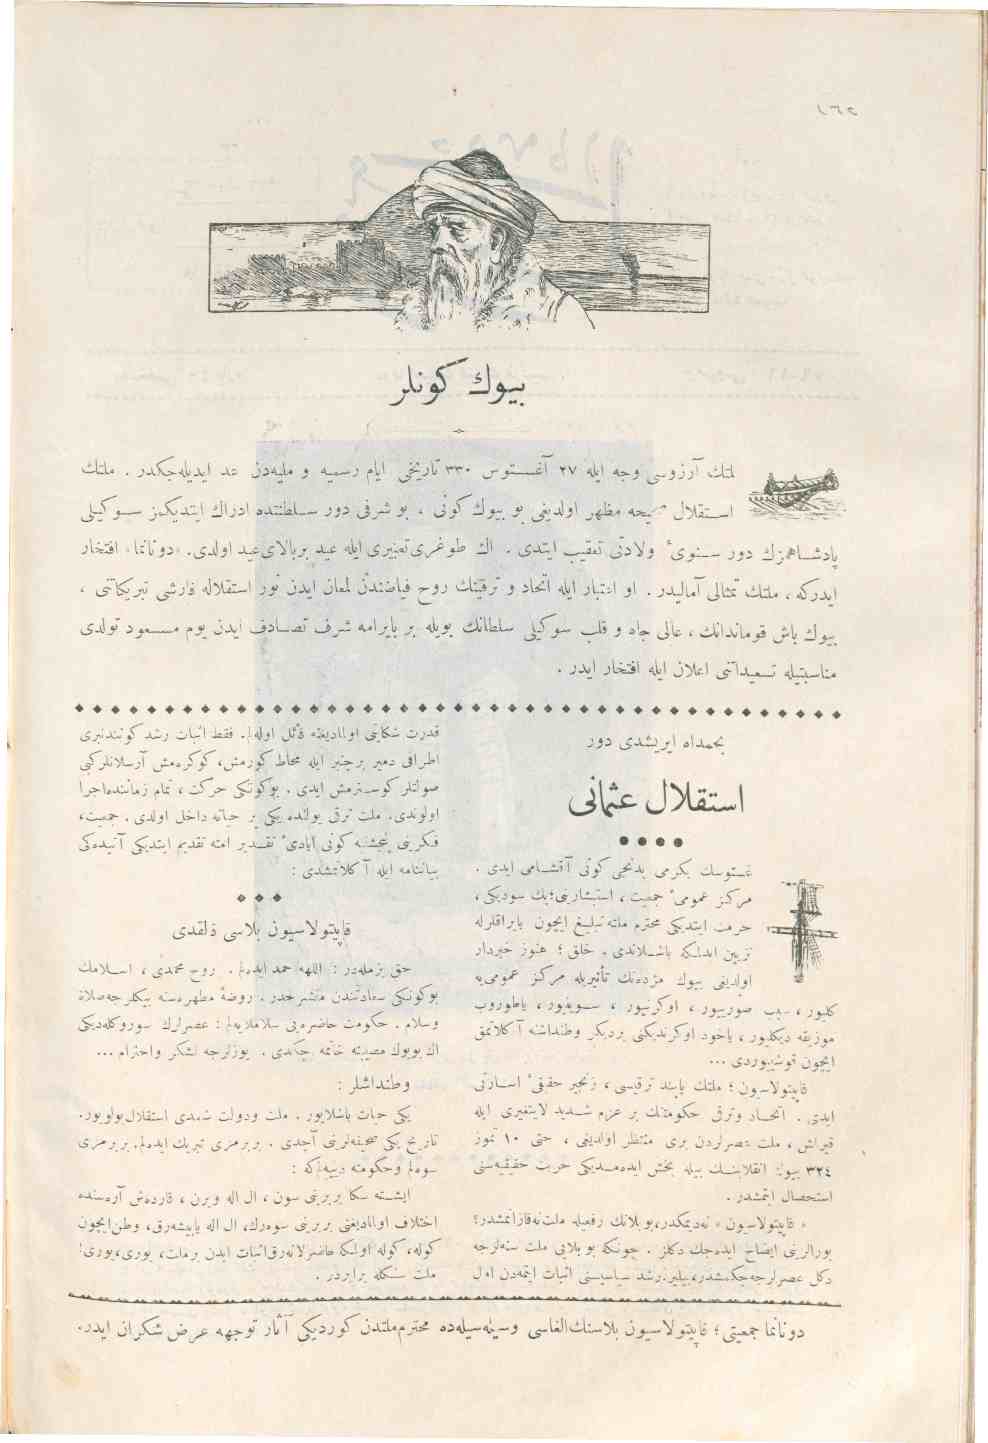 بیوك كونلر
ملتك آرزوسی وجه ایله ٢٧ آغستوس ٣٣٠ تاریخی ایام رسمیه و ملیه‌دن عد ایدیله‌جكدر . ملتك
استقلال صحیحه مظهر اولدیغی بو بیوك كونی ، بو شرفی دور سلطنتنده ادراك ایتدیكمز سوكیلی
پادشاهمزك دور سنویٔ ولادتی تعقیب ایتدی . اك طوغری تعبیری ایله عید بربالای عید اولدی. «دونانما» افتخار
ایدركه ، ملتك تمثالی آمالیدر . او اعتبار ایله اتحاد و ترقینك روح فیاضندن لمعان ایدن نور استقلاله قارشی تبریكاتنی ،
بیوك باش قوماندانك ، عالی جاه و قلب سوكیلی سلطانك بویله بر بایرامه شرف تصادف ایدن یوم مسعود تولدی
مناسبتیله تسعیداتنی اعلان ایله افتخار ایدر .
بحمداه ایریشدی دور
استقلال عثمانی
غستوسك یكرمی یدنجی كونی آقشامی ایدی .
مركز عمومیٔ جمعیت ، استبشارینی پك سودیكی ،
حرمت ایتدیكی محترم ملته تبلیغ ایچون بایراقلرله
تزیین ایدلمكه باشلاندی . خلق ؛ هنوز خبردار
اولدیغی بیوك مژده‌نك تأثیریله مركز عمومی‌یه
كلیور ، سبب صورییور ، اوكرنیور ، سوینیور ، باطوروب
موزیقه دیكلیور ، یاخود اوكرندیكنی بردیكر وطنداشنه آكلاتمق
ایچون قوشیوردی ...
قاپیتولاسیون ؛ ملتك پایبند ترقیسی ، زنجیر حقیقیٔ اسارتی
ایدی . اتحاد وترقی حكومتنك بر عزم شدید لایتغیری ایله
قیراش ، ملت عصرلردن بری منتظر اولدیغی ، حتی ١٠ تموز
٣٢٤ بیوك انقلابنك بیله بخش ایده‌مدیكی حریت حقیقیه‌سنی
استحصال ایتمشدر .
« قاپیتولاسیون » نه‌دیمكدر، بوبلانك رفعیله ملت نه‌قازانمشدر؟
بورالرینی ایضاح ایده‌جك دكلز . چونكه بوبلایی ملت سنه‌لرجه
دكل عصرلرجه چكمشدر، بیلیر. رشد سیاسیسنی اثبات ایتمه‌دن اول
قدرت شكایتی اولمادیغنه قائل اوله‌لم. فقط اثبات رشد كوسترنبری
اطرافی دمیر برچنبر ایله محاط كورمش، كوكره‌مش آرسلانلركبی
صولتلر كوسترمش ایدی . بوكونكی حركت ، تمام زماننده‌اجرا
اولوندی. ملت ترقی یولنده یكی بر حیاته داخل اولدی . جمعیت،
فكرینی پنجشنبه كونی ایادیٔ تقدیر امته تقدیم ایتدیكی آتیده‌كی
بیاننامه ایله آكلاتمشدی :
قاپیتولاسیون بلاسی قالقدی
حق بزمله‌در : اللهه حمد ایده‌لم . روح محمدی ، اسلامك
بوكونكی سعادتندن متبشردر . روضهٔ مطهره‌سنه بیكلرجه‌صلاة
وسلام . حكومت حاضره‌یی سلاملایه‌لم : عصرلرك سوروكله‌دیكی
اك بویوك مصیبته خاتمه چكدی . یوزلرجه تشكر واحترام ...
وطنداشلر :
یكی حیات باشلایور . ملت ودولت شیمدی استقلال بولویور.
تاریخ یكی صحیفه‌لرینی آچدی . بربرمزی تبریك ایده‌لم. بربرمزی
سوه‌لم وحكومته دییه‌لم‌كه :
ایشته سكا بربرینی سون ، ال اله ویرن ، قارده‌ش آره‌سنده
اختلاف اولمادیغنی بربرینی سوه‌رك، ال اله یاپیشه‌رق، وطن ایچون
كوله، كوله اولمكه حاضرلانه‌رق اثبات ایدن برملت، یوری، یوری!
ملت سنكله برابردر .
دونانما جمعیتی ؛ قاپیتولاسیون بلاسنك الغاسی وسیله‌سیله‌ده محترم ملتدن كوردیكی آثار توجهه عرض شكران ایدر.